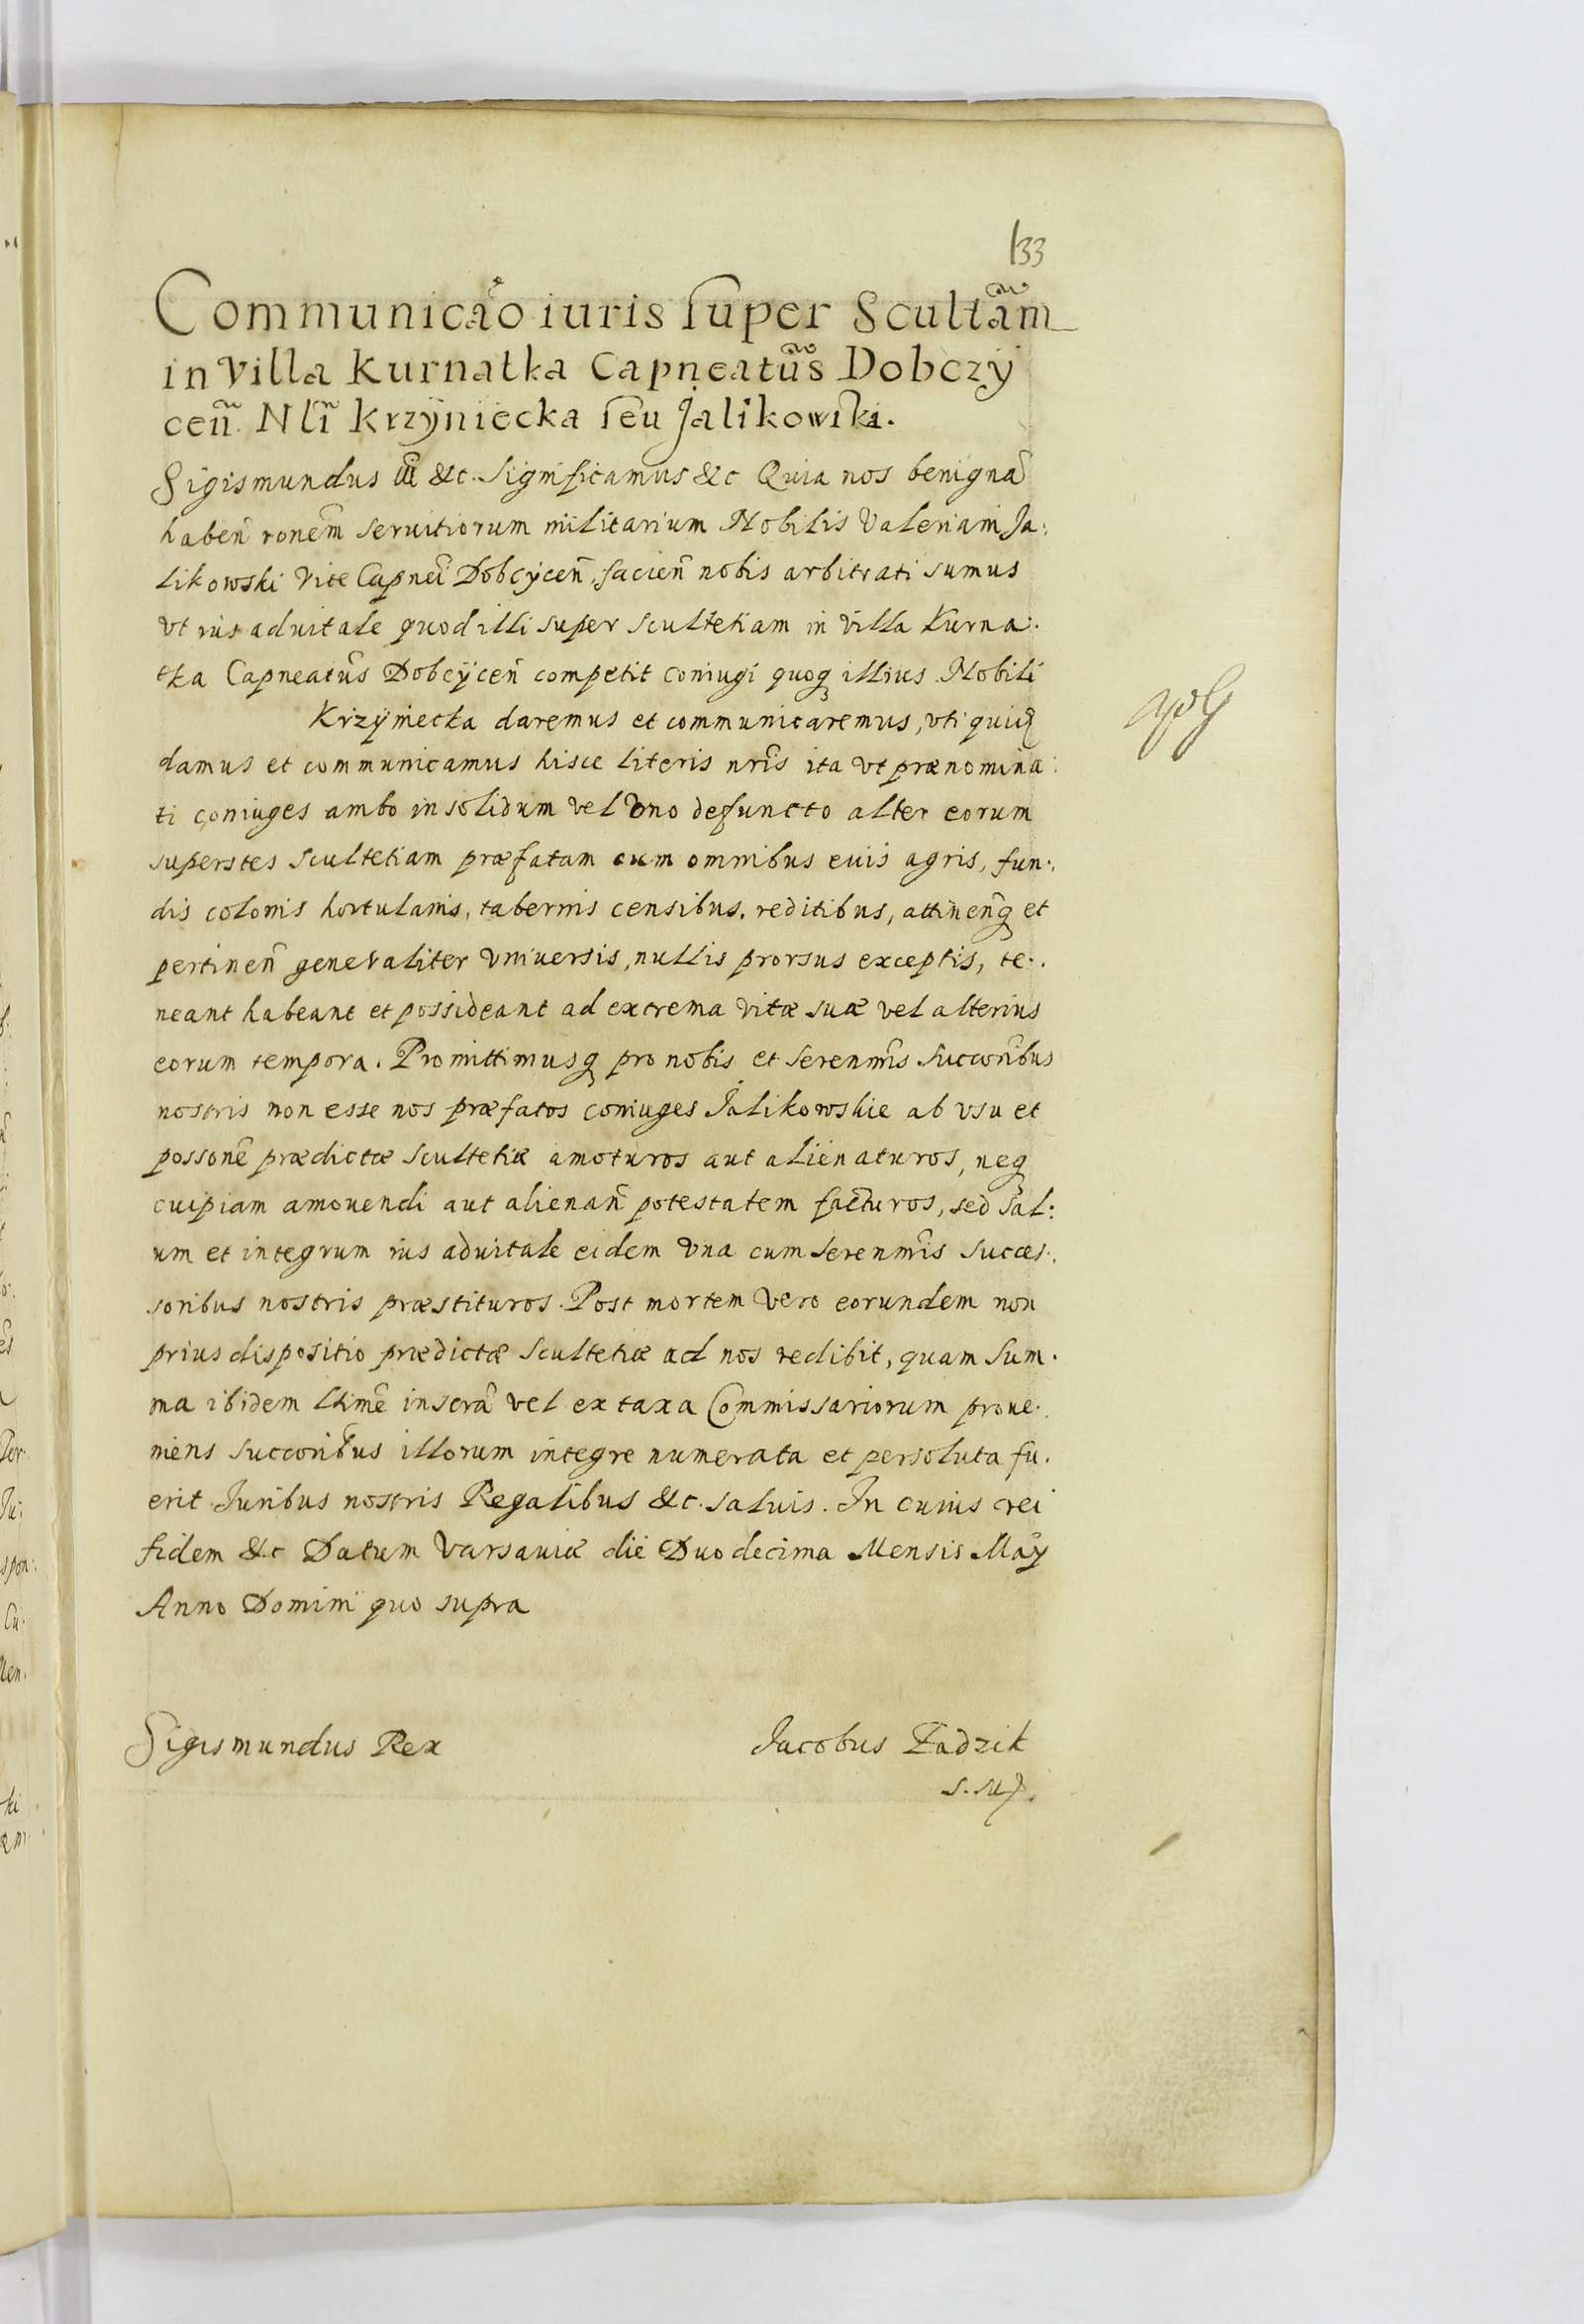 133
Communicaõ iuris super Scultãm
in Villa Kurnatka Capneatus̃ Dobczÿ
ceñ. Nlĩ Krzÿniecka seu Jalikowski.
Sigismundus III &c. Significamus &c Quia nos benignã
habeñ ronem̃ seruitiorum militarium Nobilis Valeriani Ja:
likowski Vice Capneĩ Dobcÿceñ, facieñ nobis arbitrati sumus
vt ius aduitale quod illi super scultetiam in villa Kurna:
tka Capneatus̃ Dobcÿceñ competit coniugi quoq illius Nobili
Krzÿniecka daremus et communicaremus, vti quidẽ
damus et communicamus hisce literis nrĩs ita vt prænomina:
ti coniuges ambo in solidum vel vno defuncto alter eorum
superstes scultetiam præfatam cum omnibus euis agris, fun:
dis colonis hortulanis, tabernis censibus, reditibus, attineñq et
pertineñ generaliter vniuersis, nullis prorsus exceptis, te:
neant habeant et possideant ad extrema vitæ suæ vel alterius
eorum tempora. Promittimusq pro nobis et Serenmĩs Succorĩbus
nostris non esse nos præfatos coniuges Jalikowskie ab vsu et
possonẽ prædictæ scultetiæ amoturos aut alienaturos, neq
cuipiam amouendi aut alienañ potestatem facturos, sed sal:
um et integrum ius aduitale eidem vna cum Serenmĩs succes:
soribus nostris præstituros. Post mortem vero eorundem non
prius dispositio prædictæ scultetiæ ad nos redibit, quam Sum:
ma ibidem ltimẽ inscrã vel ex taxa Commissariorum proue:
niens succorĩbus illorum integre numerata et persoluta fu:
erit. Juribus nostris Regalibus &c. saluis. In cuius rei
fidem &c Datum Varsauiæ die Duodecima Mensis Maÿ
Anno Domini quo supra
Sigismundus Rex
Jacobus Zadzik